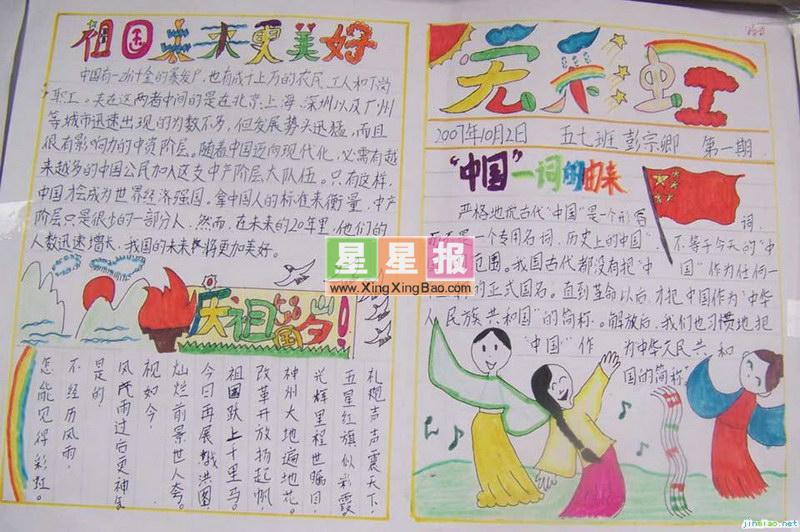 祖国未来更美好
中国有一批十全的暴发户,也有成千上万的农民工人和下岗
职工。夹在这两者中间的是在北京、上海、深圳以及广州
等城市迅速出现的为数不多,但发展势头迅猛,而且
很有影响力的中资阶层。随着中国迈向现代化,必需有越
来越多的中国公民加入这支中产阶层大队伍。只有这样,
中国才会成为世界经济强国。拿中国人的标准来衡量,中产
阶层只是很少的一部分人,然而,在未来的20年里,他们的
人数迅速增长,我国的未来将更加美好。
庆祖国58岁!
礼炮声声震天下,
五星红旗似彩霞
光辉里程世瞩目,
神州大地遍地花。
改革开放扬起帆,
祖国跃上千里马。
今日再展鸿图
灿烂前景世人夸。
视如今,
风风雨雨过后更神气
是的,
不经历风雨,
怎能见得彩虹。
天彩虹
2007年10月2日 五七班 彭宗卿 第一期
"中国"一词的由来
严格地说古代"中国"是一个形容词,
而不是一个专用名词,历史上的"中国"不等于今天的"中
范围。我国古代都没有把"中国"作为任何一
的正式国名。直到革命以后,才把中国作为"中华
人民族共和国"的简称。解放后,我们也习惯地把
"中国"作为中华人民共和
国的简称
星星报
www.XingXingBao.com
jinbiao.net